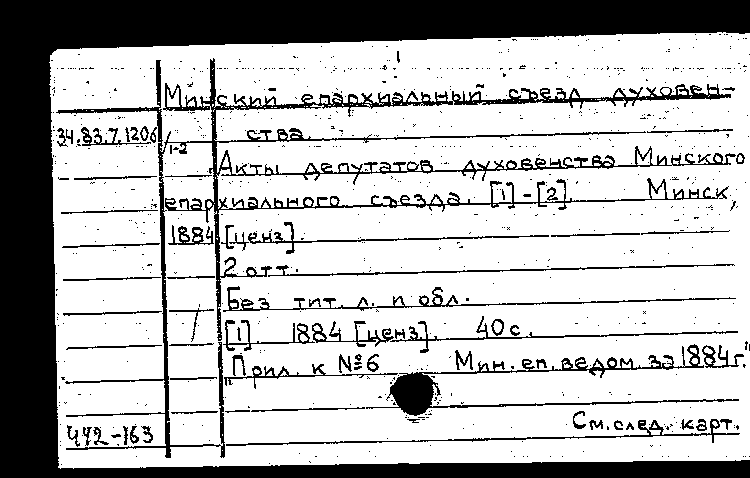 Минский епархиальный съезд духовен-
34.83.7.1206/1-2 ства.
Акты депутатов духовенства Минского
епархиального съезда. [1]-[2]. Минск,
1884 [ценз].
2 отт.
Без тит. л. и обл.
[1] 1884 [ценз]. 40 с.
"Прил. к №6 Мин. еп. ведом. за 1884 г."
См. след. карт.
442-163